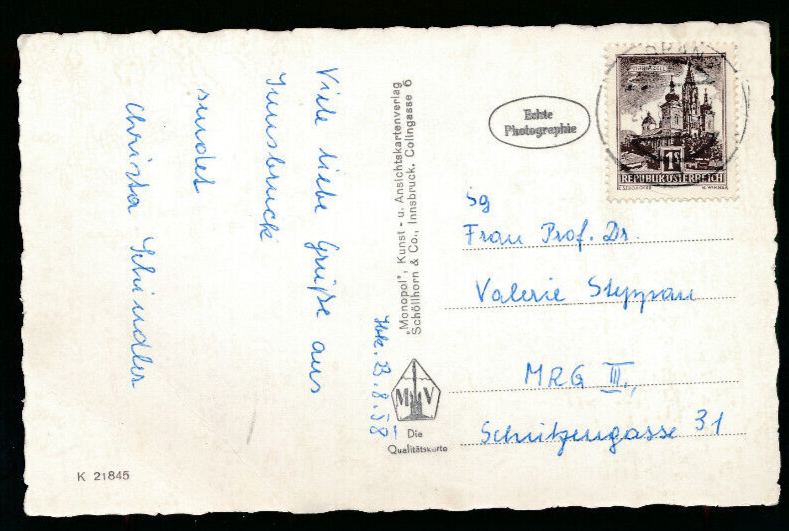 Viele liebe Grüße aus
Innsbruck
sendet
Christa Schindler
Ibk. 23.8.58
K 21845
"Monopol", Kunst- u. Ansichtskartenverlag
Schöllhorn & Co., Innsbruck, Colingasse 6
M V
Die
Qualitätskarte
Echte
Photographie
MARIAZELL
1S
REPUBLIK ÖSTERREICH
Sg
Frau Prof. Dr.
Valerie Steppan
MRG III.,
Schützengasse 31